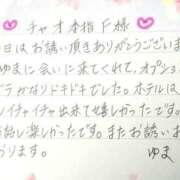 チャオ本指F様
日はお誘い頂きありがとうございま
ゆまに会いに来てくれて、オプショ
ラかなりドキドキでした。ホテルは
イチャイチャ出来て嬉しかったです。
始し楽しかったです。またお誘いお
おります。 ゆま